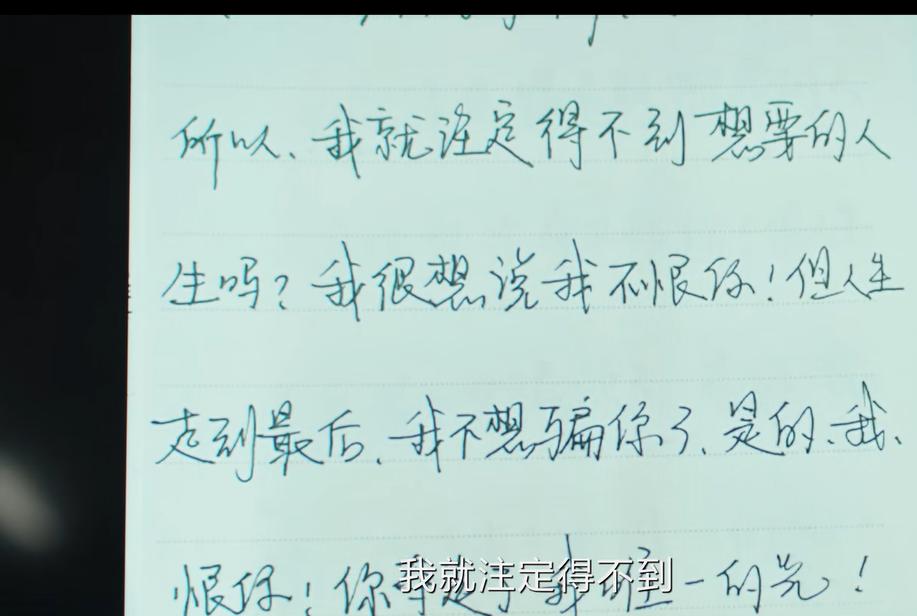 所以、我就注定得不到想要的人
生吗？我很想说我不恨你！但人生
走到最后、我不想骗你了、是的、我、
恨你！你夺走了我唯一的光！
我就注定得不到